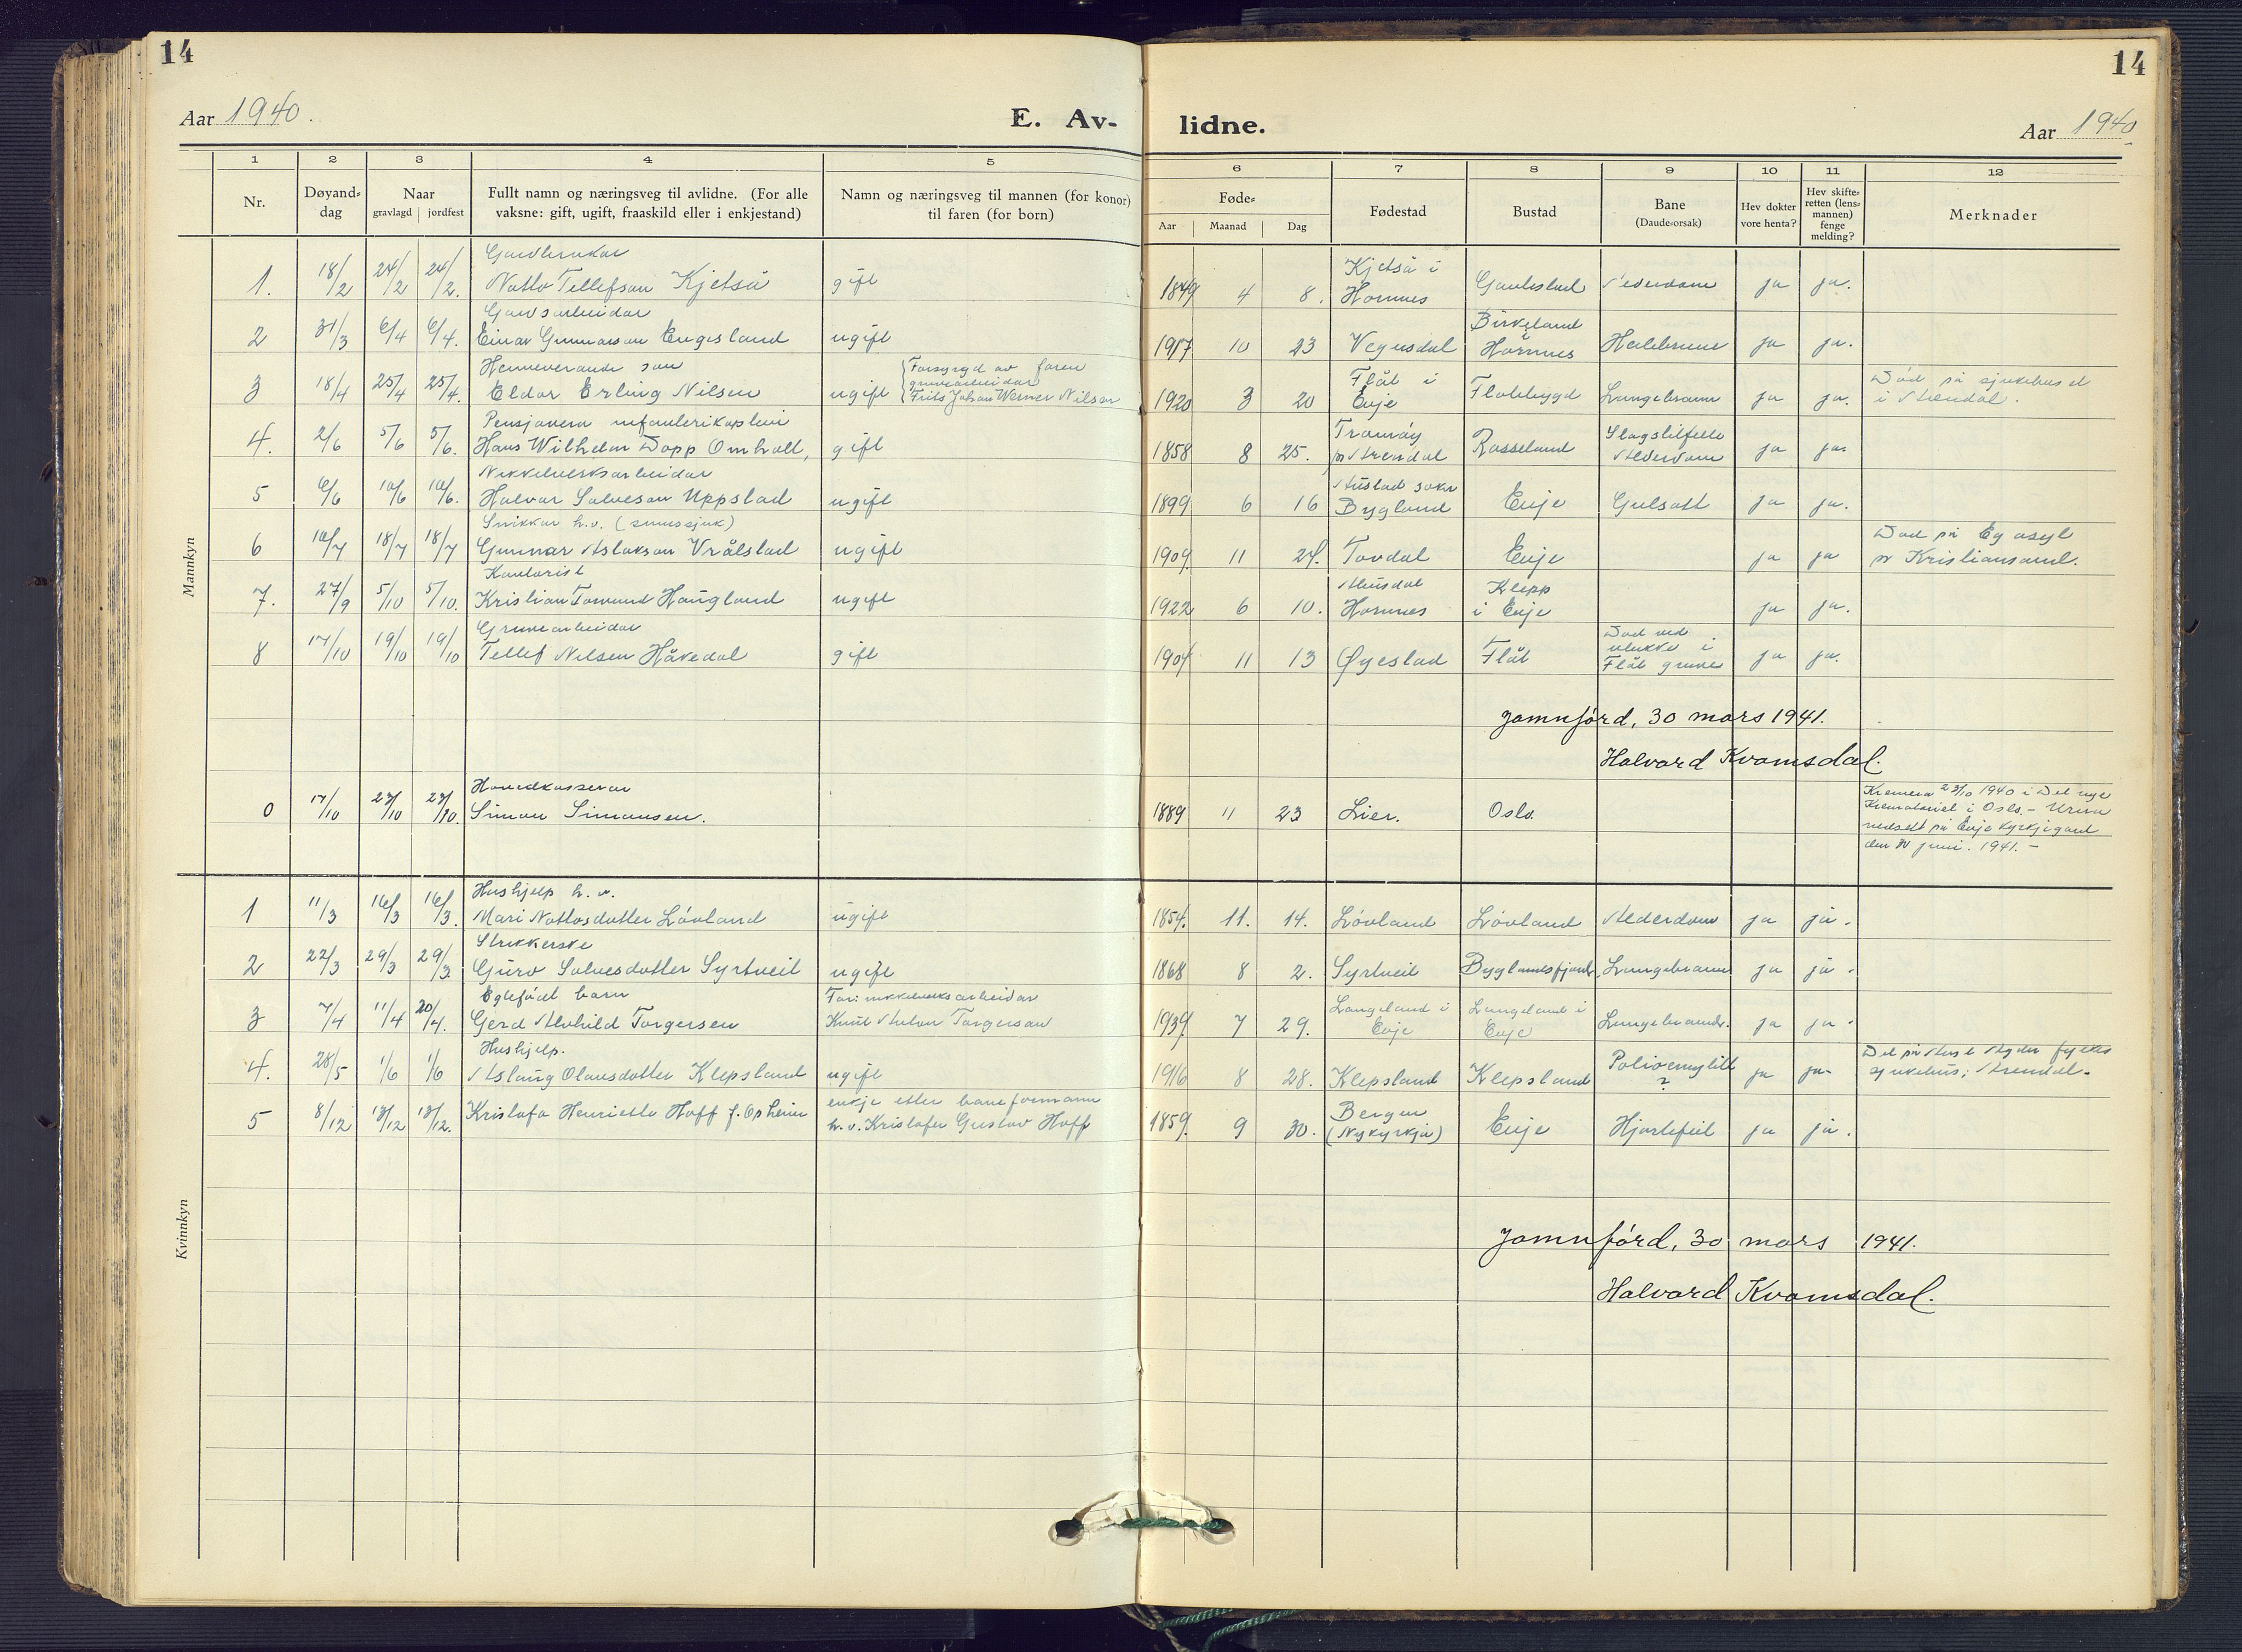 14
14
Aar 1940.
E. Av-
lidne.
Aar 1940
1 2 3 4 5 6 7 8 9 10 11 12
Nr.
Døyand-dag
Naar
gravlagd | jordfest
Fullt namn og næringsveg til avlidne. (For alle
vaksne: gift, ugift, fraaskild eller i enkjestand)
Namn og næringsveg til mannen (for konor)
til faren (for born)
Føde-
Aar | Maanad | Dag
Fødestad
Bustad
Bane
(Daude-orsak)
Hev dokter
vore henta?
Hev skifte-
retten (lens-
mannen)
fenge
melding?
Merknader
Mannkyn
Gardbrukar
1. 18/2 24/2 24/2. Notto Tellefson Kjetså gift 1849 4 8. Kjetså i Hornnes Gautestad Alderdom ja ja.
Gardsarbeidar
2 31/3 6/4 6/4. Einar Gunnarson Eugesland ugift 1917 10 23 Vegusdal Birkeland Hornnes ja ja.
Heimeverande son
3 18/4 25/4 25/4. Eldar Erling Nilsen ugift Forsyrgd av faren gruvearbeidar Frits Johan Werner Nilsen 1920 3 20 Flåt i Evje Flatebygd Lungebrann ja ja. Død på sjukehuset i Arendal.
4. 2/6 5/6 5/6. Hans Wilhelm Dopp Omholt, gift 1858 8 25. Tromøy pr Arendal Rosseland Slagtilfelle Alderdom ja ja.
Nikkelverksarbeidar
5 6/6 10/6 10/6. Halvor Salveson Uppstad ugift 1899 6 16 Austad sokn Bygland Evje Gulsott ja ja.
Snikkar h.v. (sinnssjuk)
6 10/7 18/7 18/7 Gunnar Aslakson Vrålstad ugift 1909 11 24. Tovdal Evje ja ja Død på Eg asyl pr Kristiansand.
Kontorist
7. 27/9 5/10 5/10. Kristian Tormund Haugland ugift 1922 6 10. Hornnes Klepp i Evje ja ja.
Gruvearbeidar
8 17/10 19/10 19/10 Tellef Nilsen Håvedal gift 1904 11 13 Øyestad Flåt Død ved ulukke i Flåt gruve ja ja.
Jamnførd, 30 mars 1941.
Halvard Kvamsdal.
Hovedkasserar
0 17/10 23/10 23/10. Simon Simonsen. 1889 11 23 Lier. Oslo. Kremera 23/10 1940 i Det nye
Krematoriet i Oslo. - Urna
nedsett på Evje kyrkjegard
den 30 juni. 1941. -
Kvinnkyn
Hushjelp h. v.
1 11/3 16/3 16/3. Mari Nottosdotter Lövland ugift 1854. 11. 14. Lövland Lövland Alderdom ja ja.
Strikkerske
2 22/3 29/3 29/3 Guro Salvesdotter Syrtveit ugift 1868 8 2. Syrtveit Byglandsfjord Lungebrann ja ja.
Egtefødt barn
3 7/4 11/4 20/4. Gerd Alvhild Torgersen Far: nikkelverksarbeidar Knut Anton Torgerson 1939 7 29. Langeland i Evje Langeland i Evje Lungebrand. ja ja.
Hushjelp.
4. 28/5 1/6 1/6 Aslaug Olavsdotter Klepsland ugift 1916 8 28. Klepsland Klepsland Poliomyelitt ? ja ja. Det på Aust Agder fylkes sjukehus, Arendal.
5 8/12 13/12 13/12. Kristofa Henriette Hoff f. Opheim enkje etter baneformann h. v. Kristofer Gustav Hoff 1859. 9 30. Bergen (Nykyrkja) Evje Hjartefeil ja ja.
Jamnførd, 30 mars 1941.
Halvard Kvamsdal.